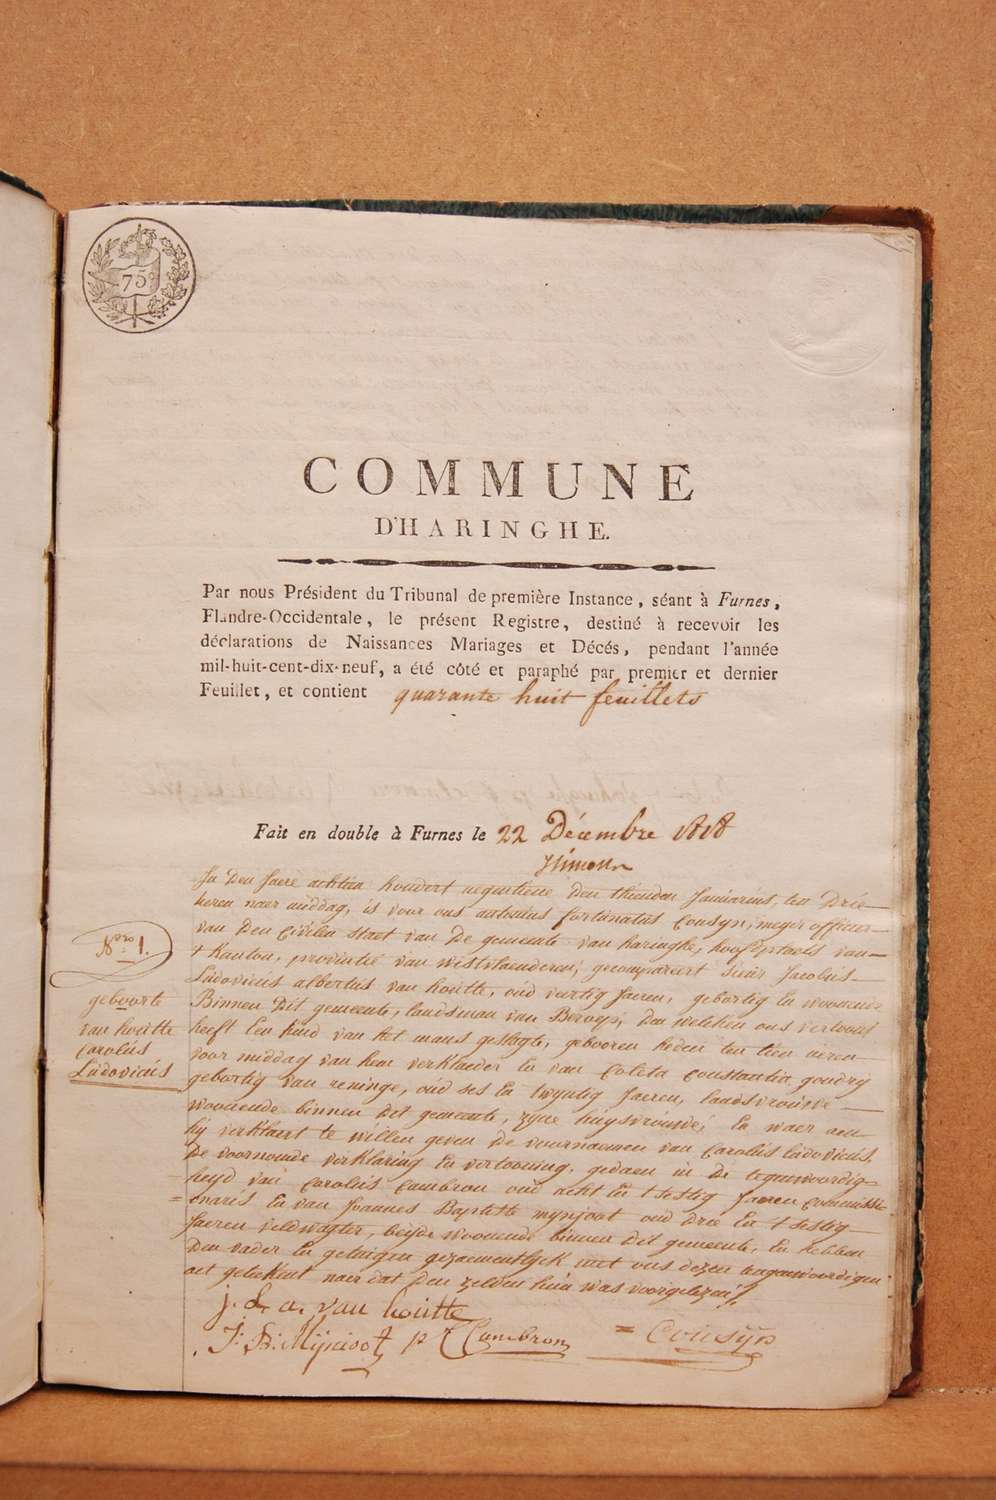 75c
COMMUNE
D'HARINGHE.
Par nous Président du Tribunal de première Instance, séant à Furnes,
Flandre-Occidentale, le présent Registre, destiné à recevoir les
déclarations de Naissances Mariages et Décés, pendant l'année
mil-huit-cent-dix-neuf, a été côté et paraphé par premier et dernier
Feuillet, et contient quarante huit feuillets
Fait en double à Furnes le 22 Décembre 1818
N.ro 1.
geboorte
van houtte
Carolus
Ludovicus
In den Jaere achtien hondert negentiene den thienden Januarius, ten drie
heren naer middag, is voor ons antonius fortunatus Cousyn, meyer officier
van den Civilen staet van de gemeente van haringhe, hoofdplaets van
t kanton, provintie van westvlaenderen, gecompareert Sieur Jacobus
Ludovicus albertus van houtte, oud veertig Jaeren, gebortig en woonende
Binnen dit gemeente, landsman van Beroep, den welcken ons vertoont
heeft een kind van het mans geslagte, gebooren heden ten tien ueren
voor middag van hem verklaeder en van Coleta Constantia goudry
gebortig van reninge, oud ses en twyntig Jaeren, landsvrouwe
woonende binnen dit gemeente, zyne huysvrouwe, En waer aen
hy verklaert te willen geven de voornaemen van Carolus Ludovicus,
de voornoemde verklaring en vertooning, gedaen in de tegenwoordig-
heyd van Carolus Cambron oud acht en t sestig Jaeren Commissi-
onaris en van Joannes Baptiste mynjoot oud drie en t sestig
Jaeren veldwagter, beijde woonende binnen dit gemeente, en hebben
den vader en getuigen gezaementlyck met ons dezen tegenwoordigen
act geteekent naer dat den zelven hun was voorgelezen
j. L. a. van houtte
J: B: Mijnioot p C Cambron = Cousyn